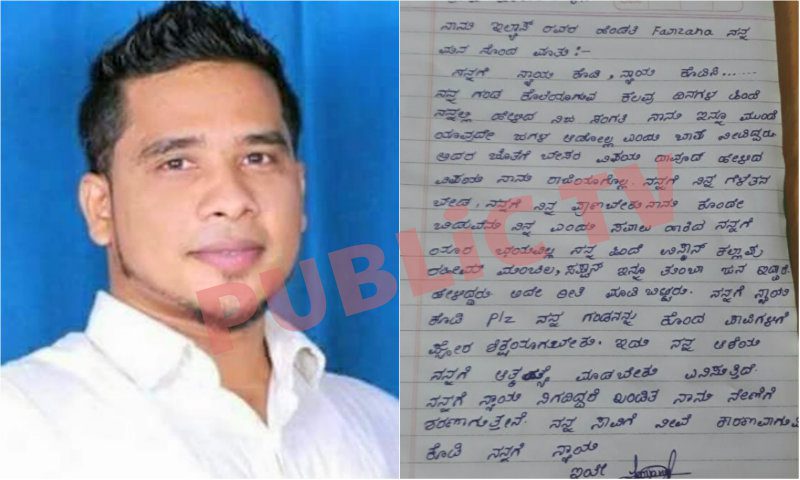 ನಾನು ಇಲ್ಯಾಸ್ ರವರ ಹೆಂಡತಿ Farzana ನನ್ನ
ಮನ ನೊಂದ ಮಾತು :-
ನನಗೆ ನ್ಯಾಯ ಕೊಡಿ, ನ್ಯಾಯ ಕೊಡಿಸಿ......
ನನ್ನ ಗಂಡ ಕೊಲೆಯಾಗುವ ಕೆಲವು ದಿನಗಳ ಹಿಂದೆ
ನನ್ನಲ್ಲಿ ಹೇಳಿದ ನಿಜ ಸಂಗತಿ ನಾನು ಇನ್ನೂ ಮುಂದೆ
ಯಾವುದೇ ಜಗಳ ಆಡೋಲ್ಲ ಎಂದು ಭಾಷೆ ನೀಡಿದ್ದರು
ಅದರ ಜೊತೆಗೆ ಬೇಸರ ವಿಷಯ ದಾವೂದ್ ಹೇಳಿದ
ವಿಷಯ ನಾನು ರಾಜಿಯಾಗೊಲ್ಲ. ನನ್ನಗೆ ನಿನ್ನ ಗೆಳೆತನ
ಬೇಡ, ನನ್ನಗೆ ನಿನ್ನ ಪ್ರಾಣಬೇಕು ನಾನು ಕೊಂದೇ
ಬಿಡುವೆನು ನಿನ್ನ ಎಂದು ಸವಾಲು ಹಾಕಿದ ನನ್ನಗೆ
ಯಾರ ಭಯವಿಲ್ಲ ನನ್ನ ಹಿಂದೆ ಉಸ್ಮಾನ್ ಕಲ್ಲಾಪು
ಇನ್ನೂ ತುಂಬಾ ಜನ ಇದ್ದಾರೆ
ಹೇಳಿದ್ದರು. ಅದೇ ರೀತಿ ಮಾಡಿಬಿಟ್ಟರು. ನನ್ನಗೆ ನ್ಯಾಯ
ಕೊಡಿ Plz ನನ್ನ ಗಂಡನನ್ನು ಕೊಂದ ಪಾಪಿಗಳಿಗೆ
ಘೋರ ಶಿಕ್ಷೆಯಾಗಬೇಕು. ಇದು ನನ್ನ ಆಶೆಯ
ನನ್ನಗೆ ಆತ್ಮ ಹತ್ಯೆ ಮಾಡಬೇಕು ಎನಿಸುತ್ತಿದೆ.
ನನ್ನಗೆ ನ್ಯಾಯ ಸಿಗದಿದ್ದರೆ ಖಂಡಿತ ನಾನು ನೇಣಿಗೆ
ಶರಣಾಗುತ್ತೇನೆ. ನನ್ನ ಸಾವಿಗೆ ನೀವೆ ಕಾರಣವಾಗುವಿ
ಕೊಡಿ ನನ್ನಗೆ ನ್ಯಾಯ
ಇಯೇ
PUBLiC TV